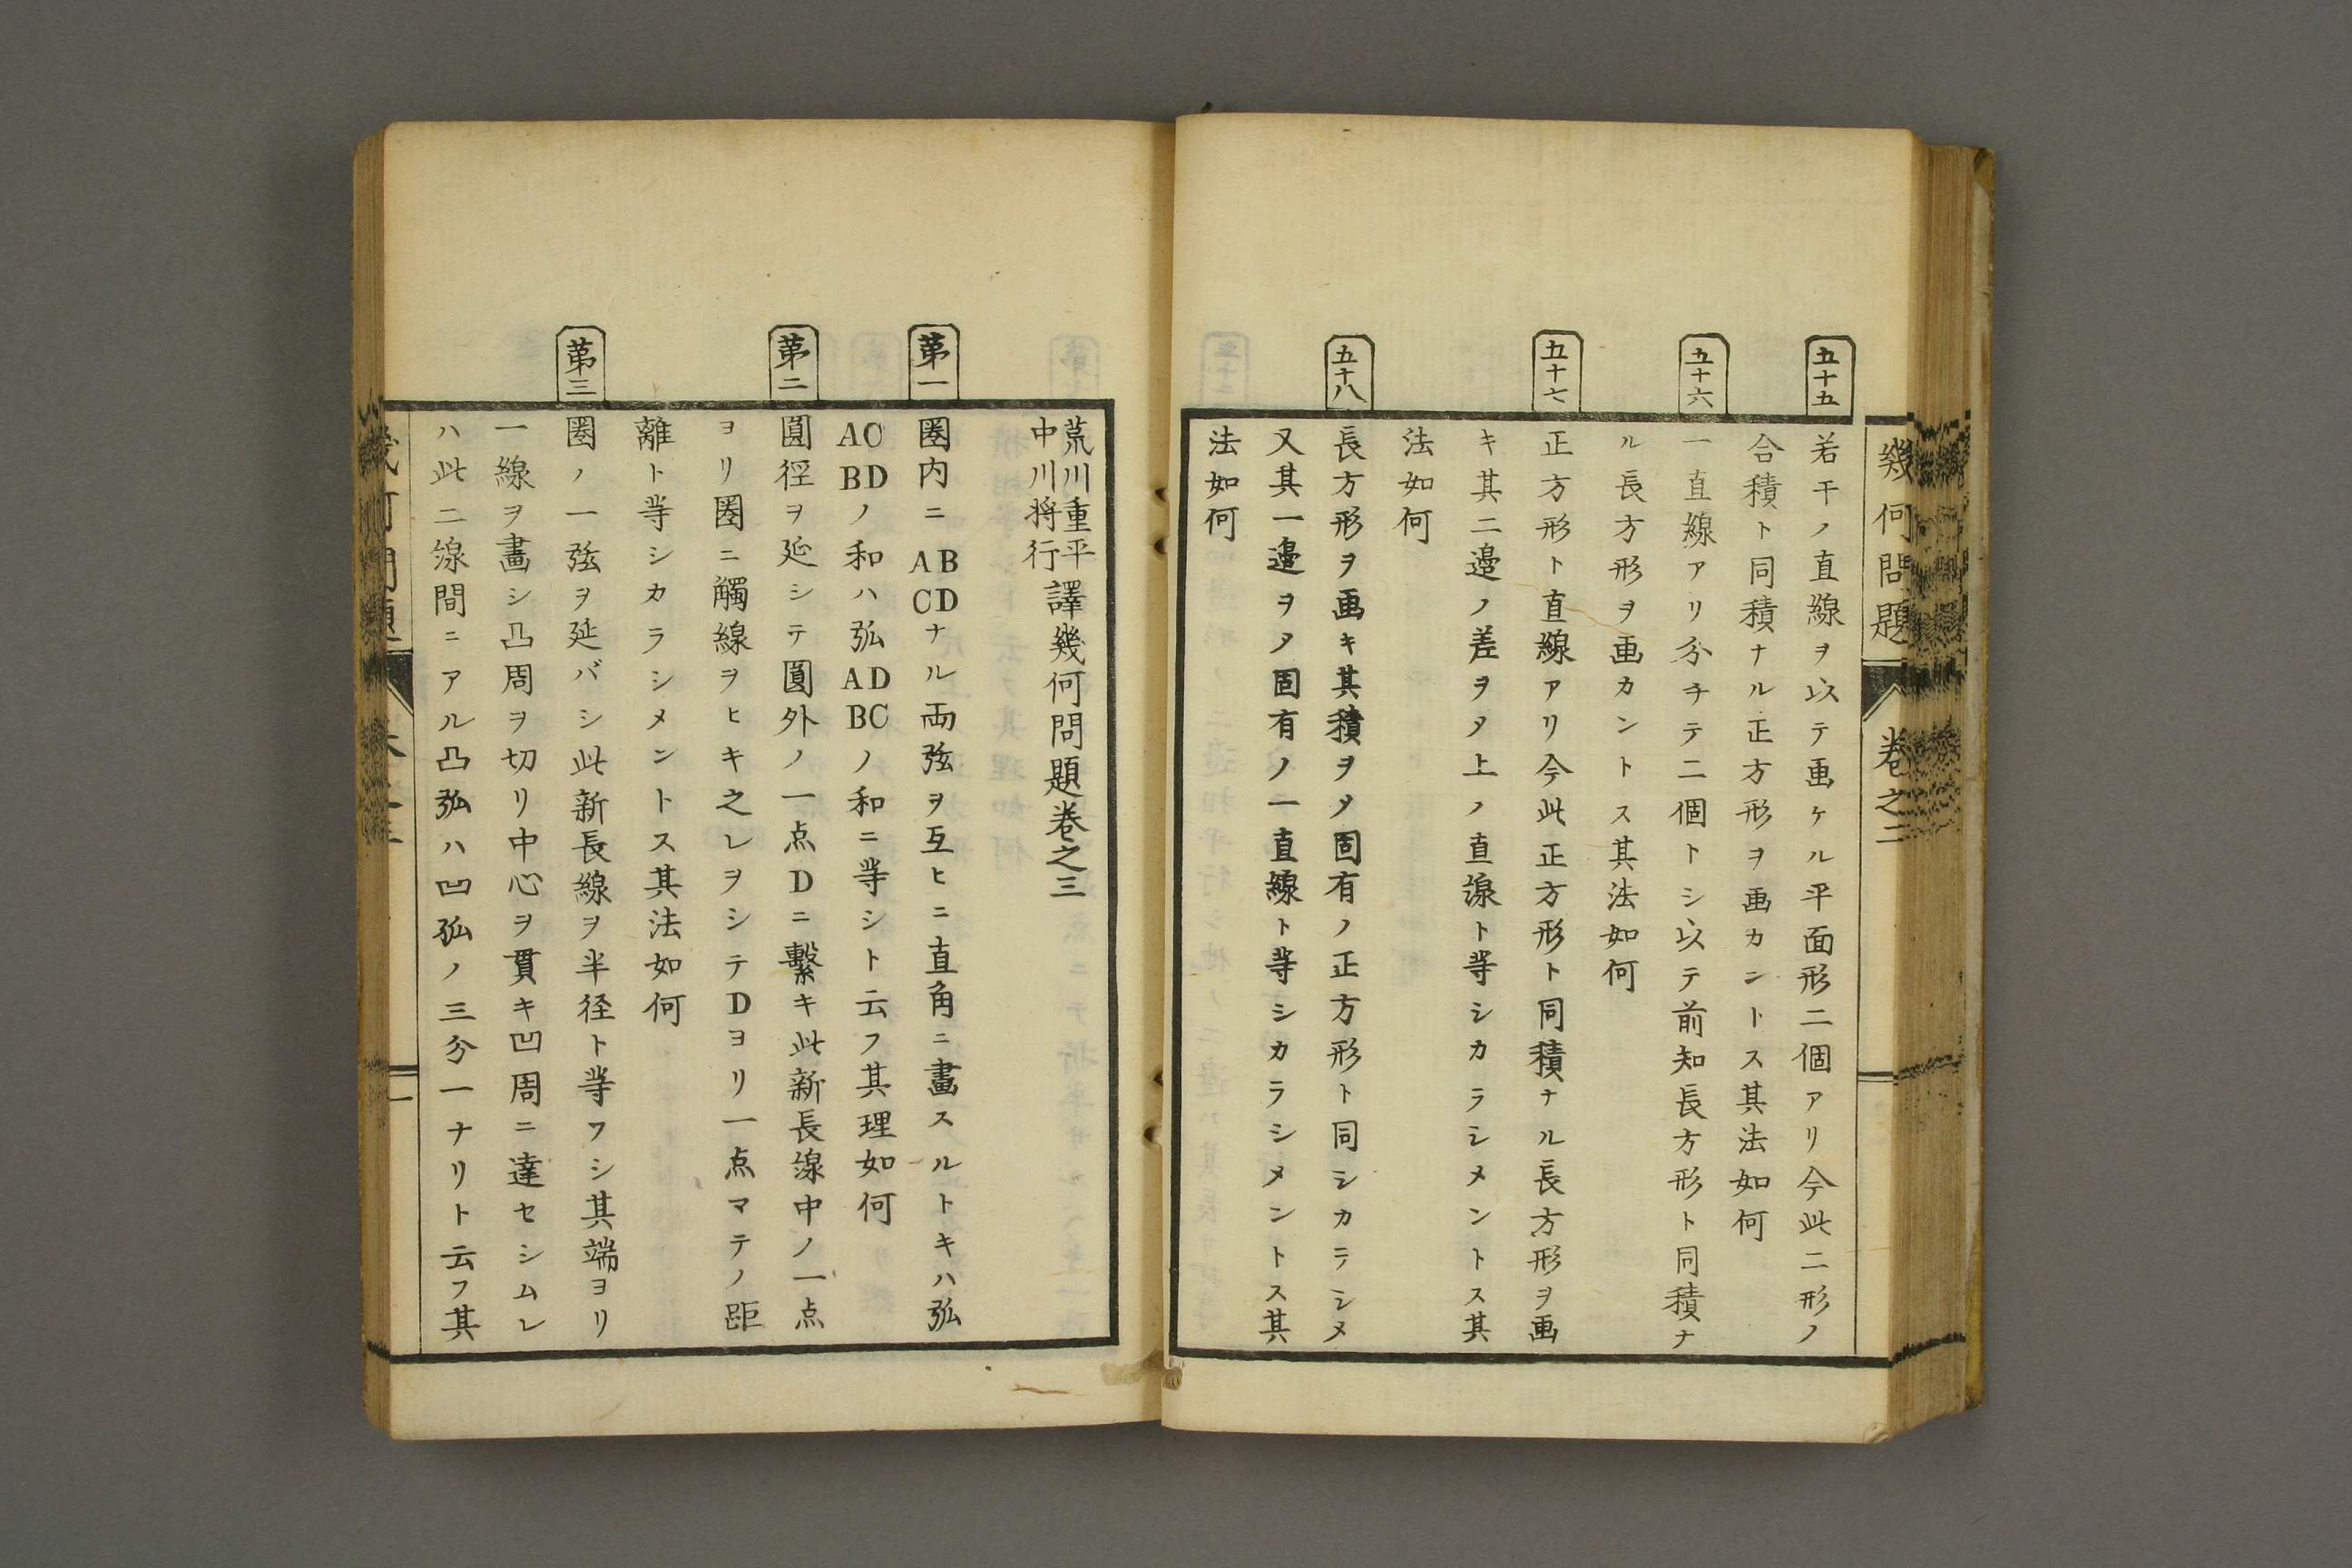 幾何問題 巻之二
五十五
若干ノ直線ヲ以テ画ケル平面形二個アリ今此二形ノ
合積ト同積ナル正方形ヲ画カントス其法如何
五十六
一直線アリ分チテ二個トシ以テ前知長方形ト同積ナ
ル長方形ヲ画カントス其法如何
五十七
正方形ト直線アリ今此正方形ト同積ナル長方形ヲ画
キ其二邉ノ差ヲ〆上ノ直線ト等シカラシメントス其
法如何
五十八
長方形ヲ画キ其積ヲ〆固有ノ正方形ト同シカラシメ
又其一邉ヲ〆固有ノ一直線ト等シカラシメントス其
法如何
荒川重平
中川将行
譯幾何問題巻之三
第一
圏内ニABCDナル両弦ヲ互ヒニ直角ニ畫スルトキハ弧
ACBDノ和ハ弧ADBCノ和ニ等シト云フ其理如何
第二
圓径ヲ延シテ圓外ノ一点Dニ繋キ此新長線中ノ一点
ヨリ圏ニ觸線ヲヒキ之レヲシテDヨリ一点マテノ距
離ト等シカラシメントス其法如何
第三
圏ノ一弦ヲ延バシ此新長線ヲ半径ト等フシ其端ヨリ
一線ヲ畫シ凸周ヲ切リ中心ヲ貫キ凹周ニ達セシムレ
ハ此二線間ニアル凸弧ハ凹弧ノ三分一ナリト云フ其
幾何問題